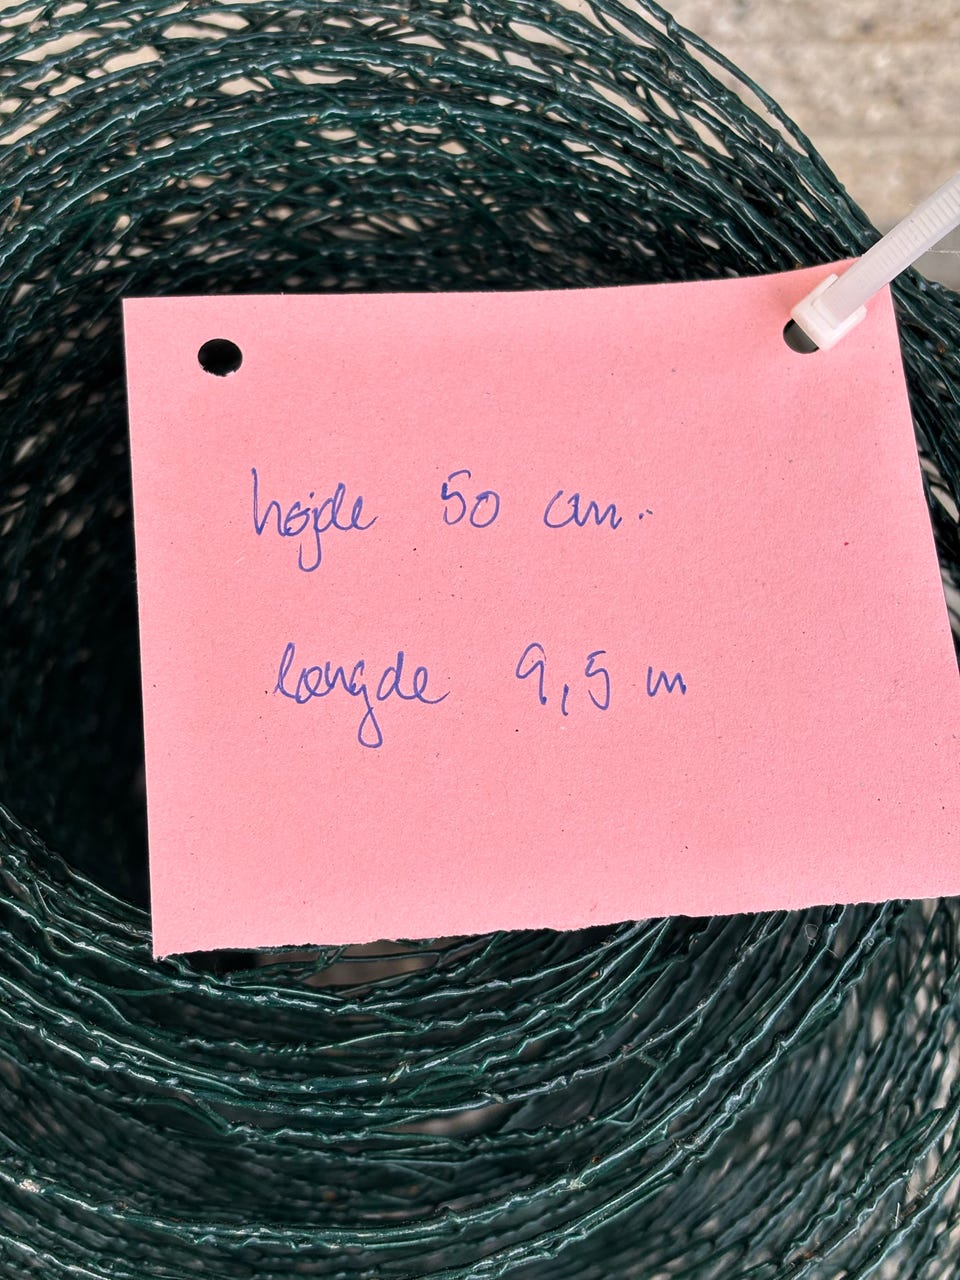 højde 50 cm.
længde 9,5 m